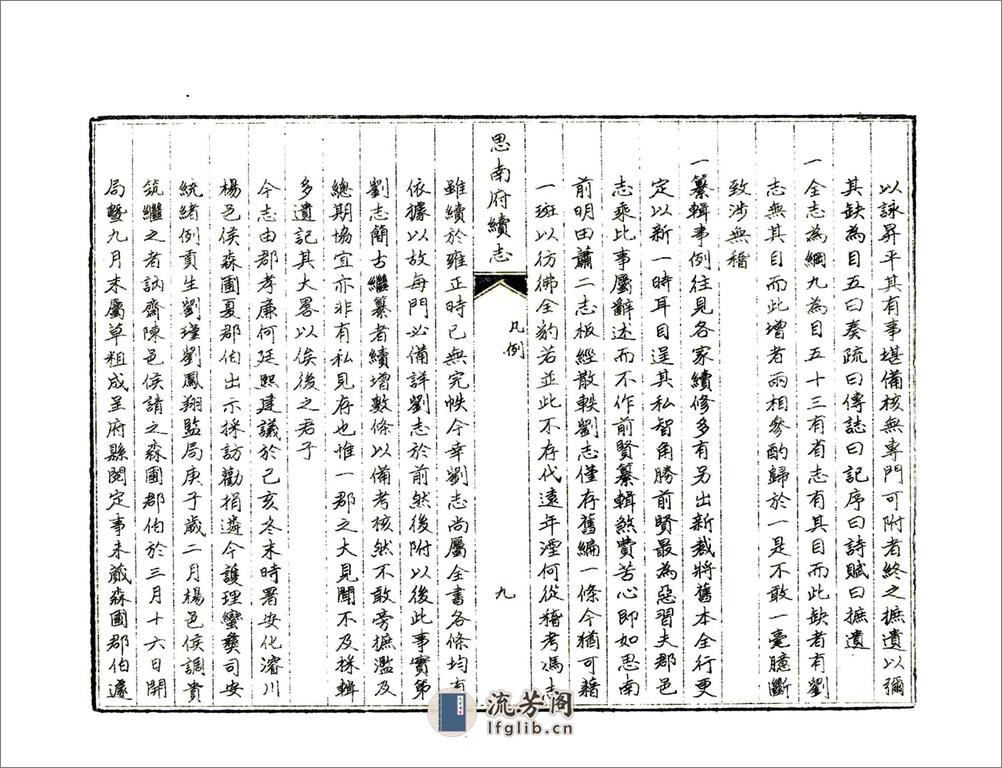 以詠昇平其有事堪備核無專門可附者終之摭遺以彌
其缺為目五曰奏疏曰傳誌曰記序曰詩賦曰摭遺
一全志為綱九為目五十三有省志有其目而此缺者有劉
志無其目而此增者兩相參酌歸於一是不敢一毫臆斷
致涉無稽
一纂輯事例往見各家續修多有另出新裁將舊本全行更
定以新一時耳目逞其私智角勝前賢最為惡習夫郡邑
志乘比事屬辭述而不作前賢纂輯煞費苦心即如思南
前明田蕭二志板經散軼劉志僅存舊編一條今猶可藉
一斑以彷佛全豹若並此不存代遠年湮何從稽考馮志
思南府續志
凡例
九
雖續於雍正時已無完帙今幸劉志尚屬全書各條均有
依據以故每門必備詳劉志於前然後附以後此事實第
劉志簡古繼纂者續增數條以備考核然不敢旁摭濫及
總期協宜亦非有私見存也惟一郡之大見聞不及採輯
多遺記其大畧以俟後之君子
今志由郡孝廉何廷熙建議於己亥冬末時署安化濬川
楊邑侯森圃夏郡伯出示採訪勸捐遴今護理蠻夷司安
統緒例貢生劉瑾劉鳳翔監局庚子歲二月楊邑侯調貴
筑繼之者訥齋陳邑侯請之森圃郡伯於三月十六日開
局暨九月末屬草粗成呈府縣閱定事未蕆森圃郡伯遽
流芳阁
lfglib.cn